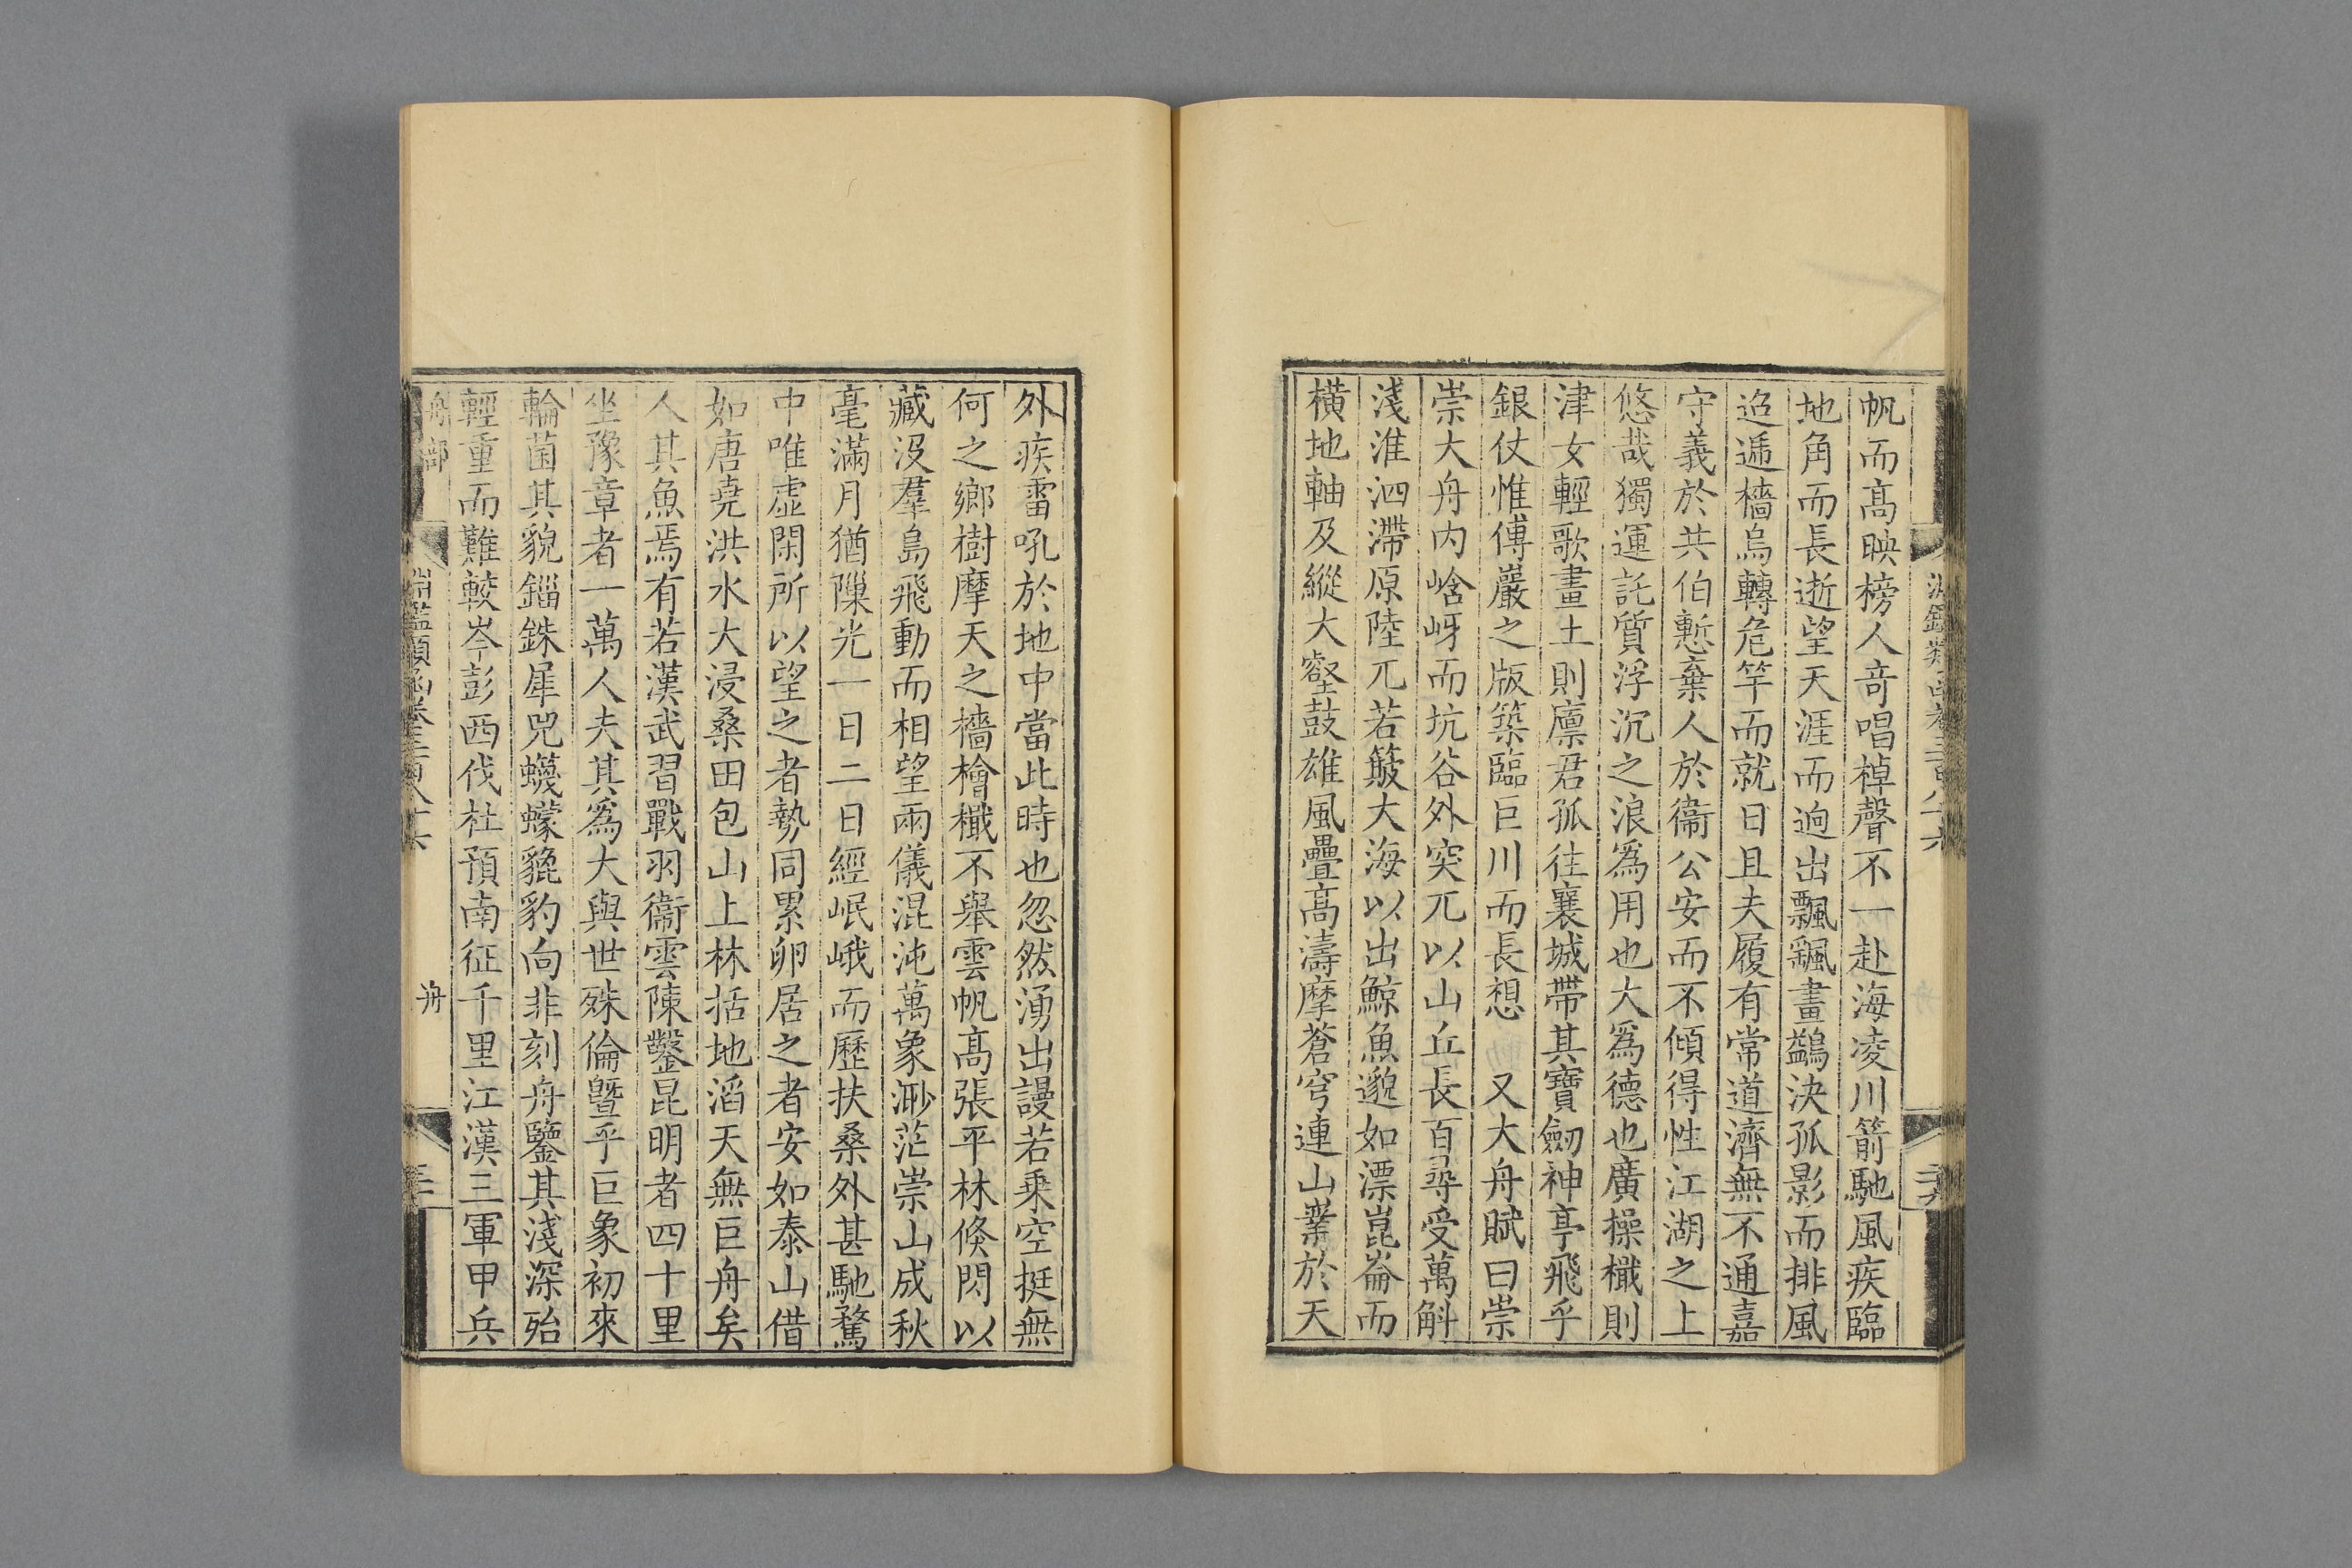 帆而高映榜人奇唱棹聲不一赴海凌川箭馳風疾臨
地角而長逝望天涯而逈出飄飖畫鷁決孤影而排風
迢遞檣烏轉危竿而就日且夫履有常道濟無不通嘉
守義於共伯慙棄人於衞公安而不傾得性江湖之上
悠哉獨運託質浮沉之浪爲用也大爲德也廣操檝則
津女輕歌畫土則廪君孤往襄城帶其寶劒神亭飛乎
銀仗惟傅巖之版築臨巨川而長想 又大舟賦曰崇
崇大舟内峆岈而坑谷外突兀以山丘長百尋受萬斛
淺淮泗滯原陸兀若簸大海以出鯨魚邈如漂崑崙而
横地軸及縱大壑鼓雄風疊高濤摩蒼穹連山業於天
外疾雷吼於地中當此時也忽然湧出謾若乗空挺無
何之鄉樹摩天之檣檜檝不舉雲帆高張平林倐閃以
藏没羣島飛動而相望兩儀混沌萬象渺茫崇山成秋
毫滿月猶隟光一日二日經岷峨而歷扶桑外甚馳騖
中唯虚閑所以望之者勢同累卵居之者安如泰山借
如唐堯洪水大浸桑田包山上林括地滔天無巨舟矣
人其魚焉有若漢武習戰羽衞雲陳鑿昆明者四十里
坐豫章者一萬人夫其爲大與世殊倫曁乎巨象初來
輪菌其貌錙銖犀兕蠛蠓貔豹向非刻舟鑒其淺深殆
輕重而難較岑彭西伐杜預南征千里江漢三軍甲兵
舟部
淵鑑類函卷三百八十六
舟